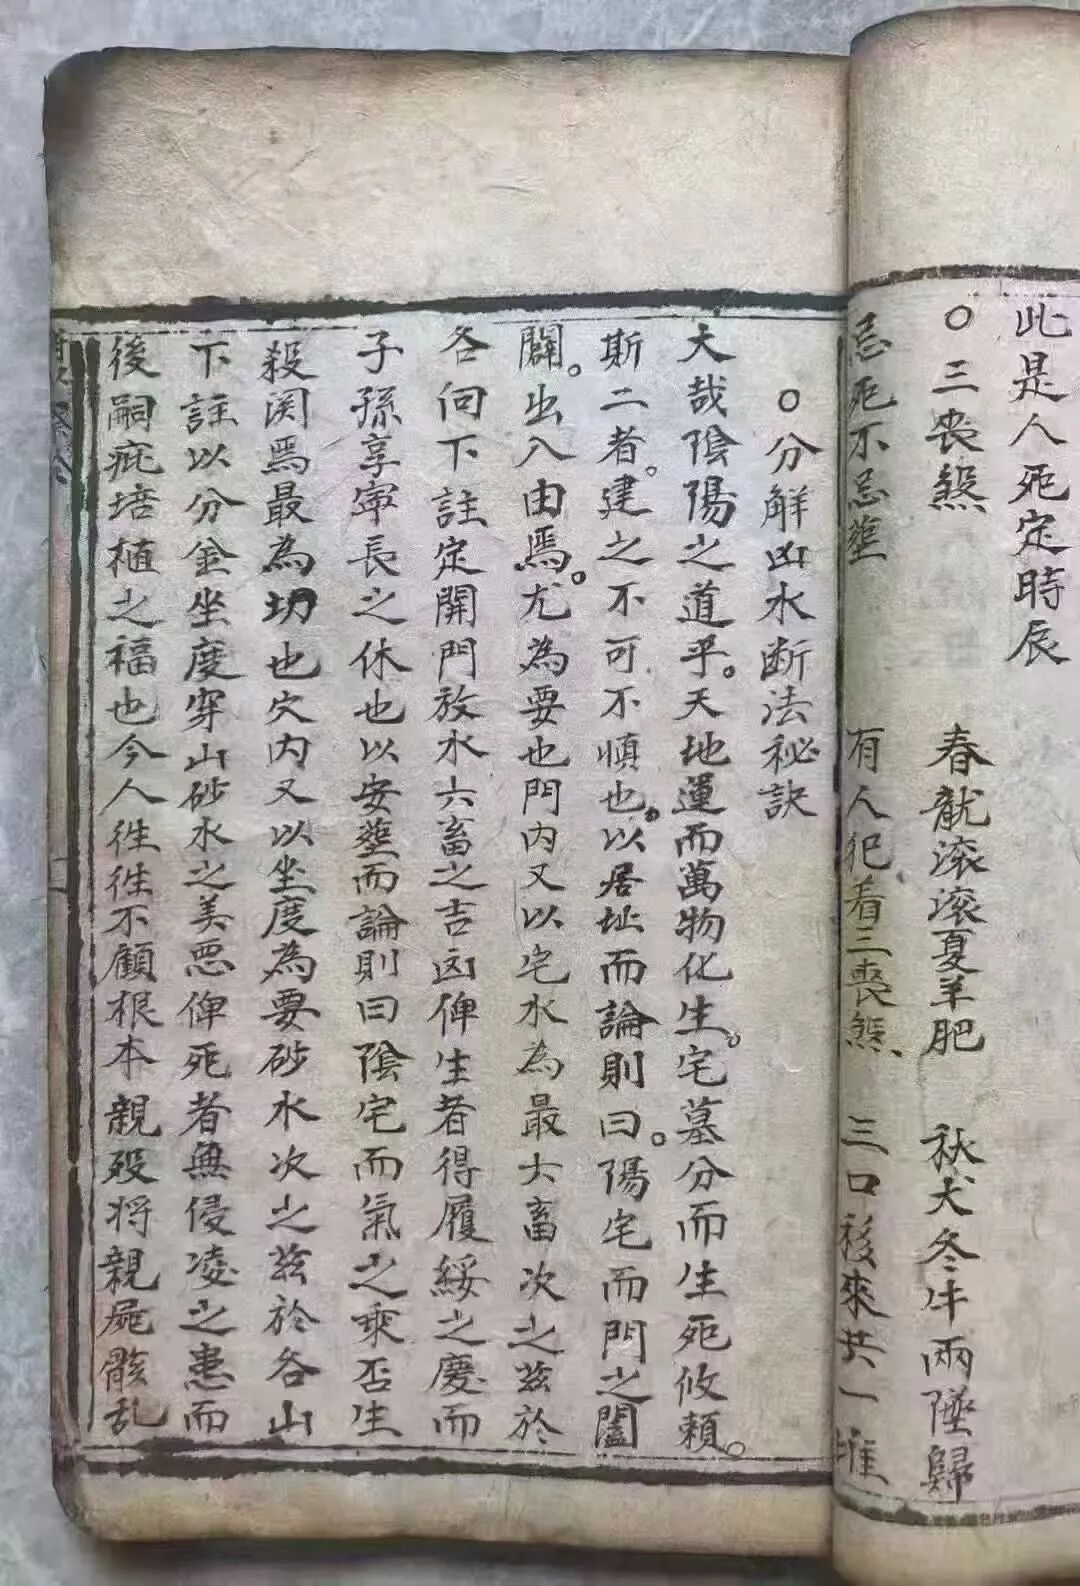 此是人死定時辰
○三喪煞 春龍滚滚夏羊肥 秋犬冬牛兩墜歸
忌死不忌塟 有人犯着三喪煞 三口移來共一堆
○分解凶水断法秘訣
大哉陰陽之道乎。天地運而萬物化生。宅墓分而生死攸頼。
斯二者。建之不可不慎也。以居址而論則曰。陽宅而門之闔
闢。出入由焉。尤為要也門内又以宅水為最六畜次之兹於
各向下註定開門放水六畜之吉凶俾生者得履綏之慶而
子孫享寜長之休也以安塟而論則曰陰宅而氣之乘否生
殺関焉最為切也穴内又以坐度為要砂水次之兹於各山
下註以分金坐度穿山砂水之美悪俾死者無侵凌之患而
後嗣疵培植之福也今人徃徃不顧根本親殁将親屍骸乱